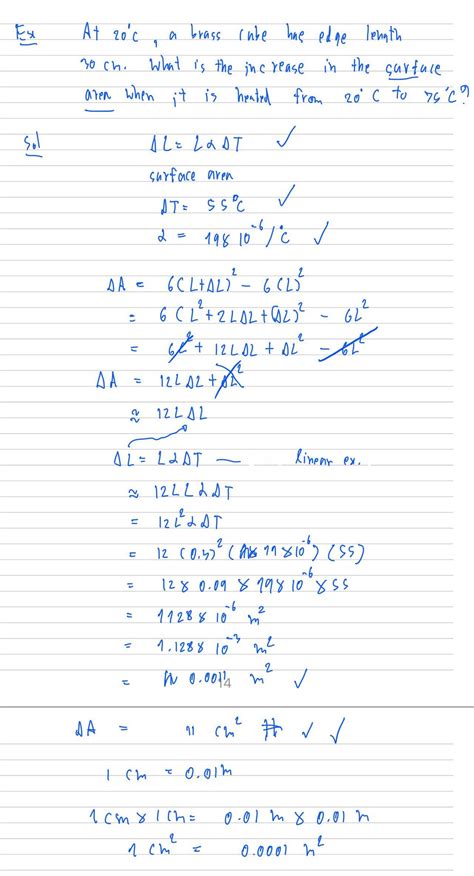 Ex At 20°C, a brass cube has edge length
30 cm. What is the increase in the surface
area when it is heated from 20°C to 75°C?
Sol ΔL = LαΔT ✓
surface area
ΔT = 55°C ✓
α = 19×10⁻⁶/°C ✓
ΔA = 6(L+ΔL)² − 6(L)²
= 6(L²+2LΔL+(ΔL)²) − 6L²
= 6L² + 12LΔL + ΔL² − 6L²
ΔA = 12LΔL + ΔL²
≈ 12LΔL
ΔL = LαΔT — linear ex.
≈ 12LLαΔT
= 12L²αΔT
= 12 (0.3)² (19×10⁻⁶) (55)
= 12×0.09×19×10⁻⁶×55
= 1128×10⁻⁶ m²
= 1.128×10⁻³ m²
= 0.0011 m² ✓
14
ΔA = 11 cm² # ✓ ✓
1 cm = 0.01m
1cm×1cm = 0.01m×0.01m
1 cm² = 0.0001 m²